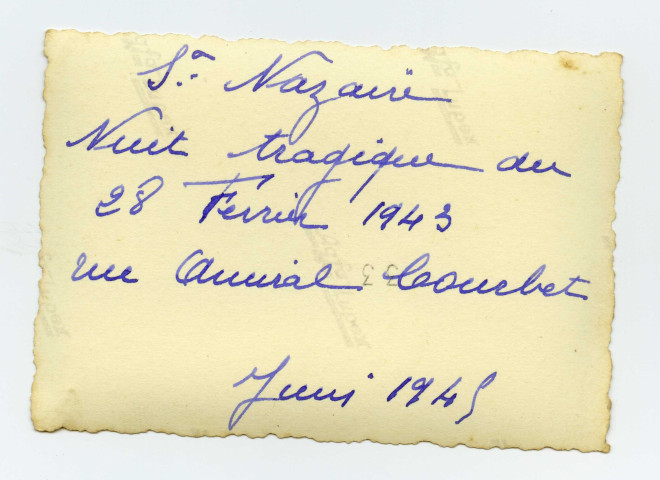 St. Nazaire
Nuit tragique du
28 Fevrier 1943
rue Amiral Courbet
Juin 1945